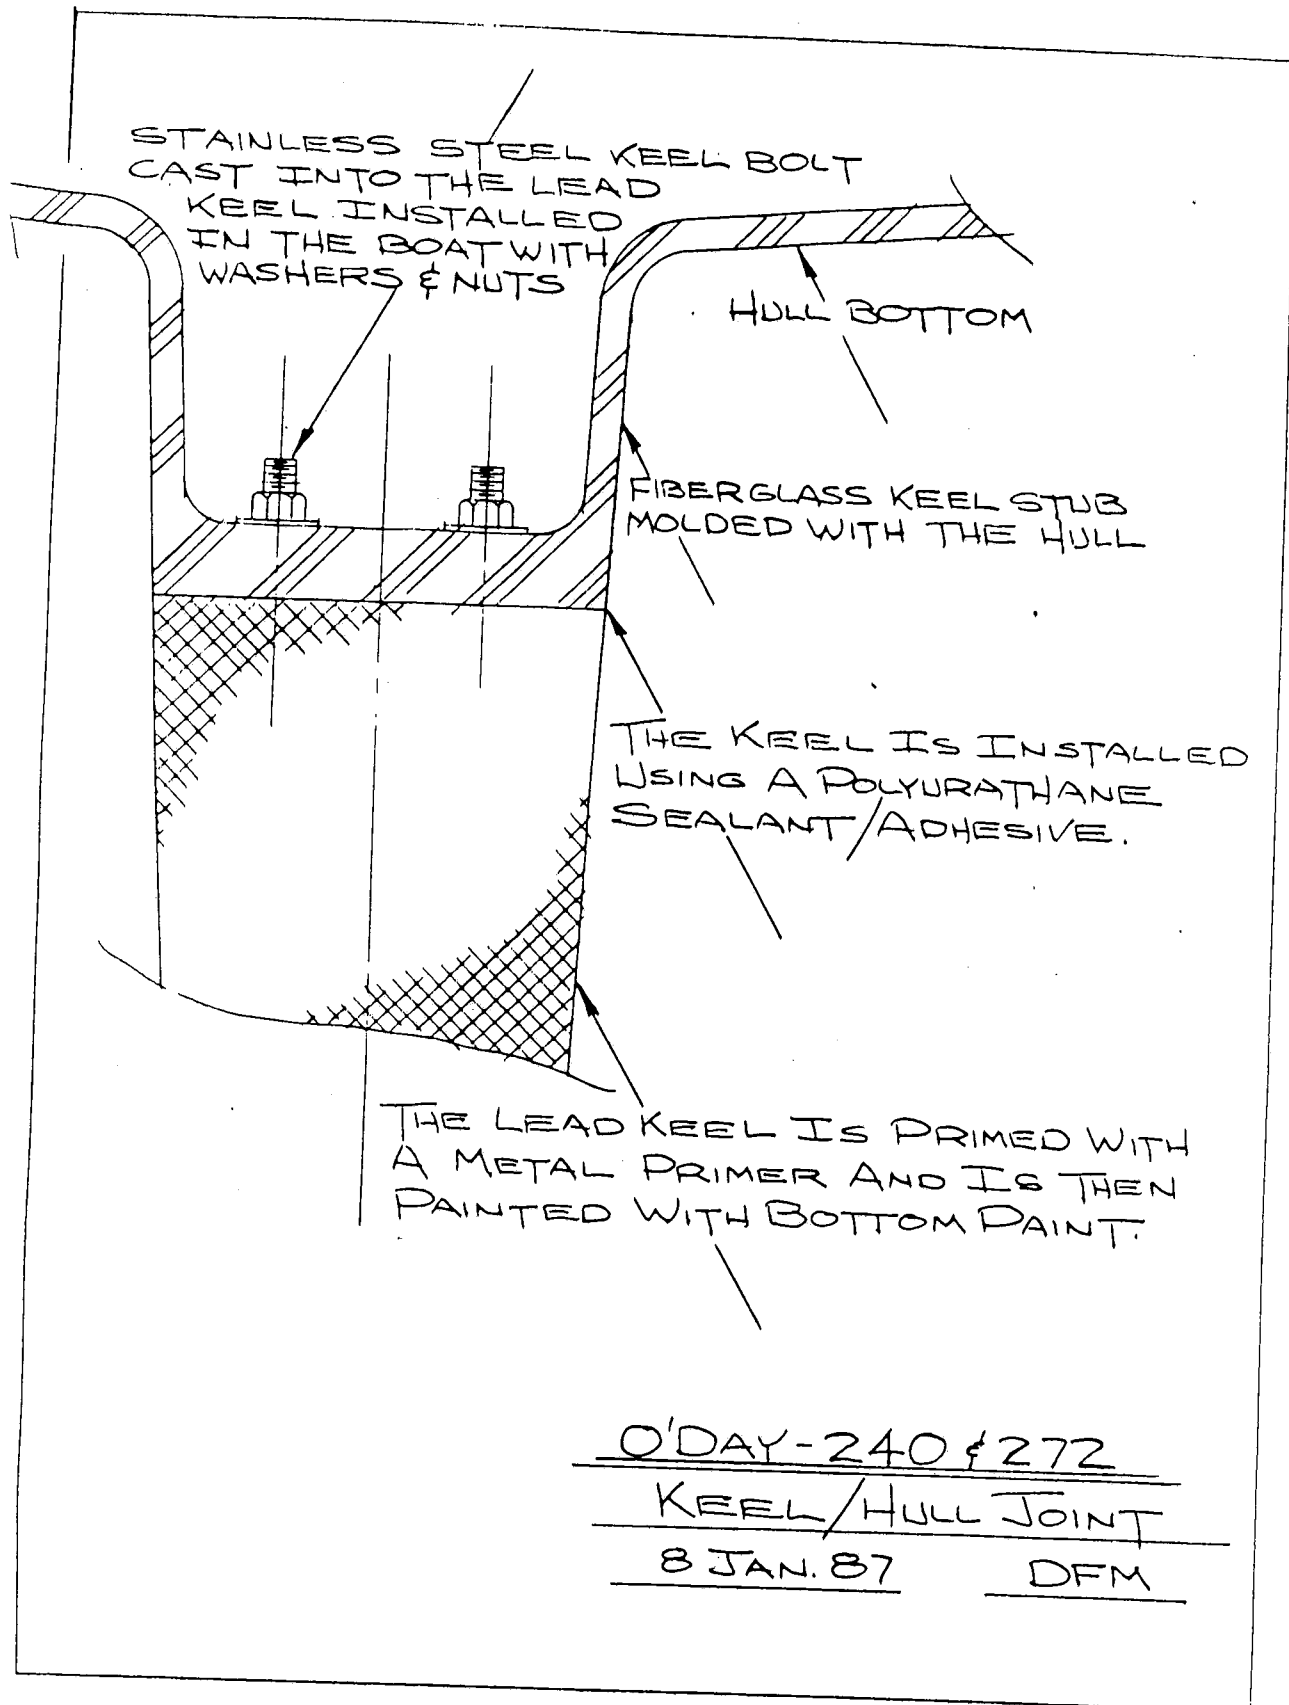 STAINLESS STEEL KEEL BOLT
CAST INTO THE LEAD
KEEL INSTALLED
IN THE BOAT WITH
WASHERS & NUTS
HULL BOTTOM
FIBERGLASS KEEL STUB
MOLDED WITH THE HULL
THE KEEL IS INSTALLED
USING A POLYURATHANE
SEALANT/ADHESIVE.
THE LEAD KEEL IS PRIMED WITH
A METAL PRIMER AND IS THEN
PAINTED WITH BOTTOM PAINT.
O'DAY-240 & 272
KEEL/HULL JOINT
8 JAN. 87 DFM